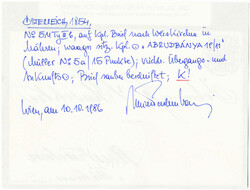 ÖSTERREICH, 1854,
No 5M Ty III b, auf kpl. Brief nach Weisskirchen in
Mähren; waager. sitz. kpl. "ABRUDBÁNYA 19/11"
(Müller No 5a / 15 Punkte); rücks. Übergangs- und
Ankunfts; Brief sauber K!
Wien, am 10.10.1986